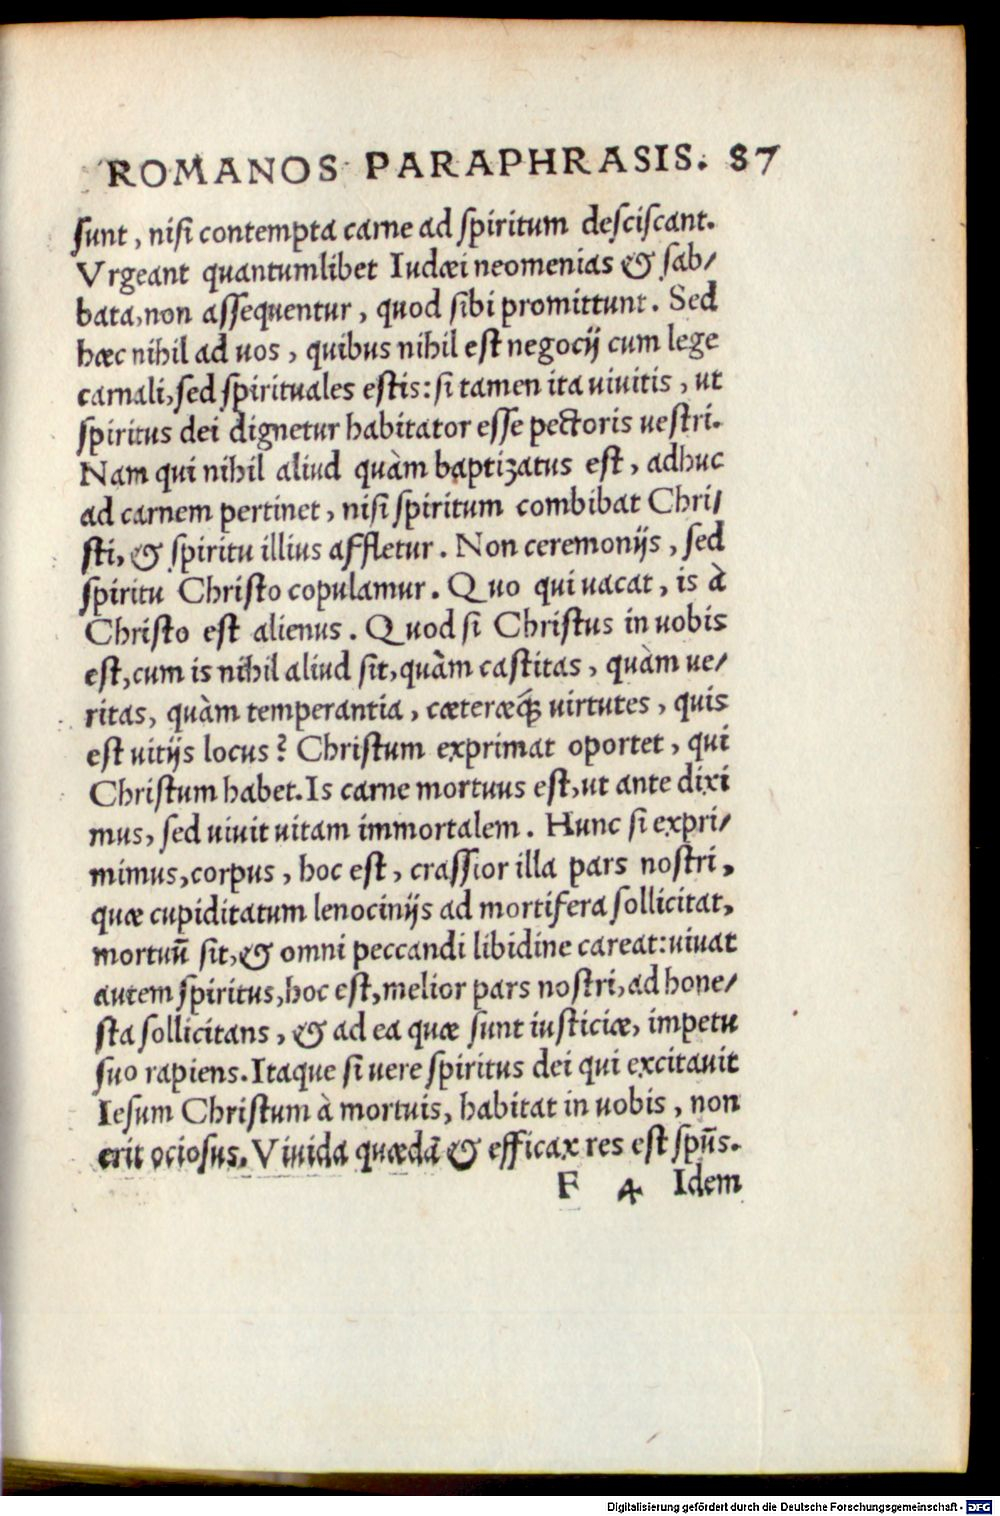 ROMANOS PARAPHRASIS. 87
sunt, nisi contempta carne ad spiritum desciscant.
Vrgeant quantumlibet Iudæi neomenias & sab/
bata, non assequentur, quod sibi promittunt. Sed
hæc nihil ad uos, quibus nihil est negocij cum lege
carnali, sed spirituales estis: si tamen ita uiuitis, ut
spiritus dei dignetur habitator esse pectoris uestri.
Nam qui nihil aliud quàm baptizatus est, adhuc
ad carnem pertinet, nisi spiritum combibat Chri/
sti, & spiritu illius affletur. Non ceremonijs, sed
spiritu Christo copulamur. Quo qui uacat, is à
Christo est alienus. Quod si Christus in uobis
est, cum is nihil aliud sit, quàm castitas, quàm ue/
ritas, quàm temperantia, cæteræq́; uirtutes, quis
est uitijs locus? Christum exprimat oportet, qui
Christum habet. Is carne mortuus est, ut ante dixi
mus, sed uiuit uitam immortalem. Hunc si expri/
mimus, corpus, hoc est, crassior illa pars nostri,
quæ cupiditatum lenocinijs ad mortifera sollicitat,
mortuū sit, & omni peccandi libidine careat: uiuat
autem spiritus, hoc est, melior pars nostri, ad hone/
sta sollicitans, & ad ea quæ sunt iusticiæ, impetu
suo rapiens. Itaque si uere spiritus dei qui excitauit
Iesum Christum à mortuis, habitat in uobis, non
erit ociosus. Viuida quædā & efficax res est spūs.
F 4 Idem
Digitalisierung gefördert durch die Deutsche Forschungsgemeinschaft - DFG